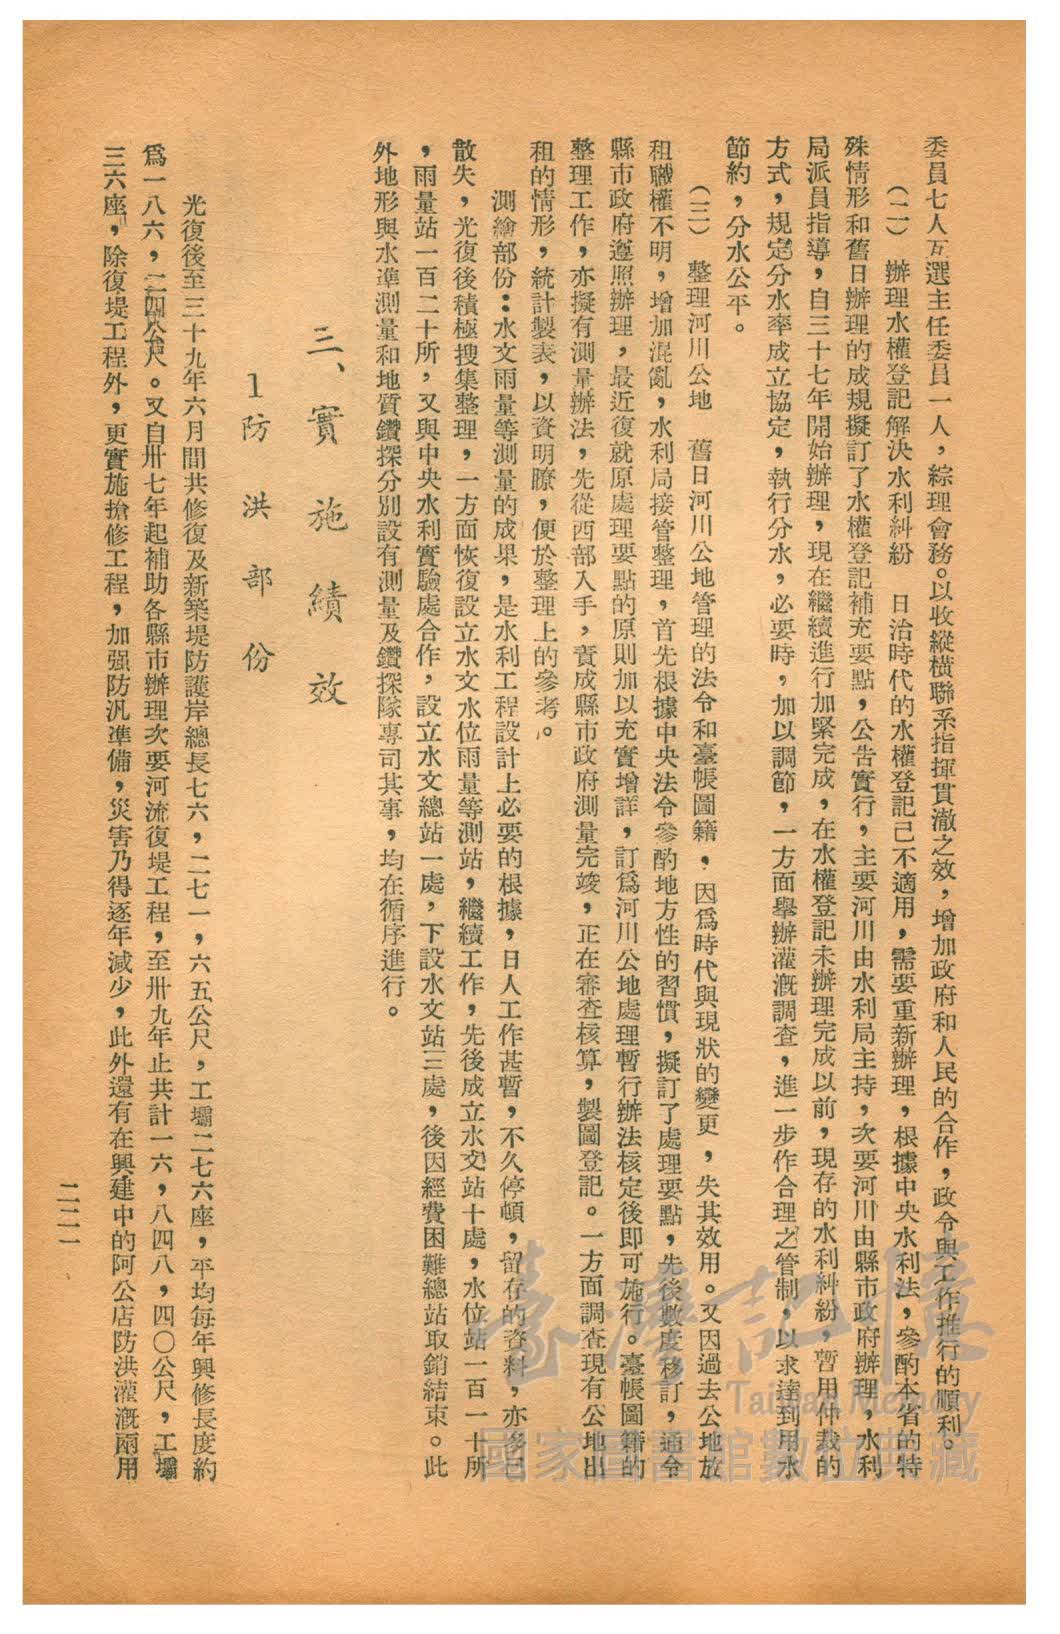 委員七人互選主任委員一人，綜理會務。以收縱橫聯系指揮貫澈之效，增加政府和人民的合作，政令與工作推行的順利。
（二）　辦理水權登記解決水利糾紛　日治時代的水權登記已不適用，需要重新辦理，根據中央水利法，參酌本省的特
殊情形和舊日辦理的成規擬訂了水權登記補充要點，公告實行，主要河川由水利局主持，次要河川由縣市政府辦理，水利
局派員指導，自三十七年開始辦理，現在繼續進行加緊完成，在水權登記未辦理完成以前，現存的水利糾紛，暫用仲裁的
方式，規定分水率成立協定，執行分水，必要時，加以調節，一方面舉辦灌漑調查，進一步作合理之管制，以求達到用水
節約，分水公平。
（三）　整理河川公地　舊日河川公地管理的法令和臺帳圖籍，因爲時代與現狀的變更，失其效用。又因過去公地放
租職權不明，增加混亂，水利局接管整理，首先根據中央法令參酌地方性的習慣，擬訂了處理要點，先後數度移訂，通令
縣市政府遵照辦理，最近復就原處理要點的原則加以充實增詳，訂爲河川公地處理暫行辦法核定後即可施行。臺帳圖籍的
整理工作，亦擬有測量辦法，先從西部入手，責成縣市政府測量完竣，正在審查核算，製圖登記。一方面調查現有公地出
租的情形，統計製表，以資明瞭，便於整理上的參考。
測繪部份：水文雨量等測量的成果，是水利工程設計上必要的根據，日人工作甚暫，不久停頓，留存的資料，亦多已
散失，光復後積極搜集整理，一方面恢復設立水文水位雨量等測站，繼續工作，先後成立水文站十處，水位站一百一十所
，雨量站一百二十所，又與中央水利實驗處合作，設立水文總站一處，下設水文站三處，後因經費困難總站取銷結束。此
外地形與水準測量和地質鑽探分別設有測量及鑽探隊專司其事，均在循序進行。
三、實施績效
1防洪部份
光復後至三十九年六月間共修復及新築堤防護岸總長七六，二七一，六五公尺，工壩二七六座，平均每年興修長度約
爲一八六，二四公尺。又自卅七年起補助各縣市辦理次要河流復堤工程，至卅九年止共計一六，八四八，四〇公尺，工壩
三六座，除復堤工程外，更實施搶修工程，加强防汎準備，災害乃得逐年減少，此外還有在興建中的阿公店防洪灌漑兩用
二二一
臺灣記憶
Taiwan Memory
國家圖書館數位典藏